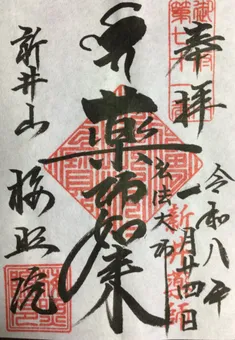 奉拝
令和八年一月廿四日
弘法大師
薬師如来
新井薬師
新井山 梅照院